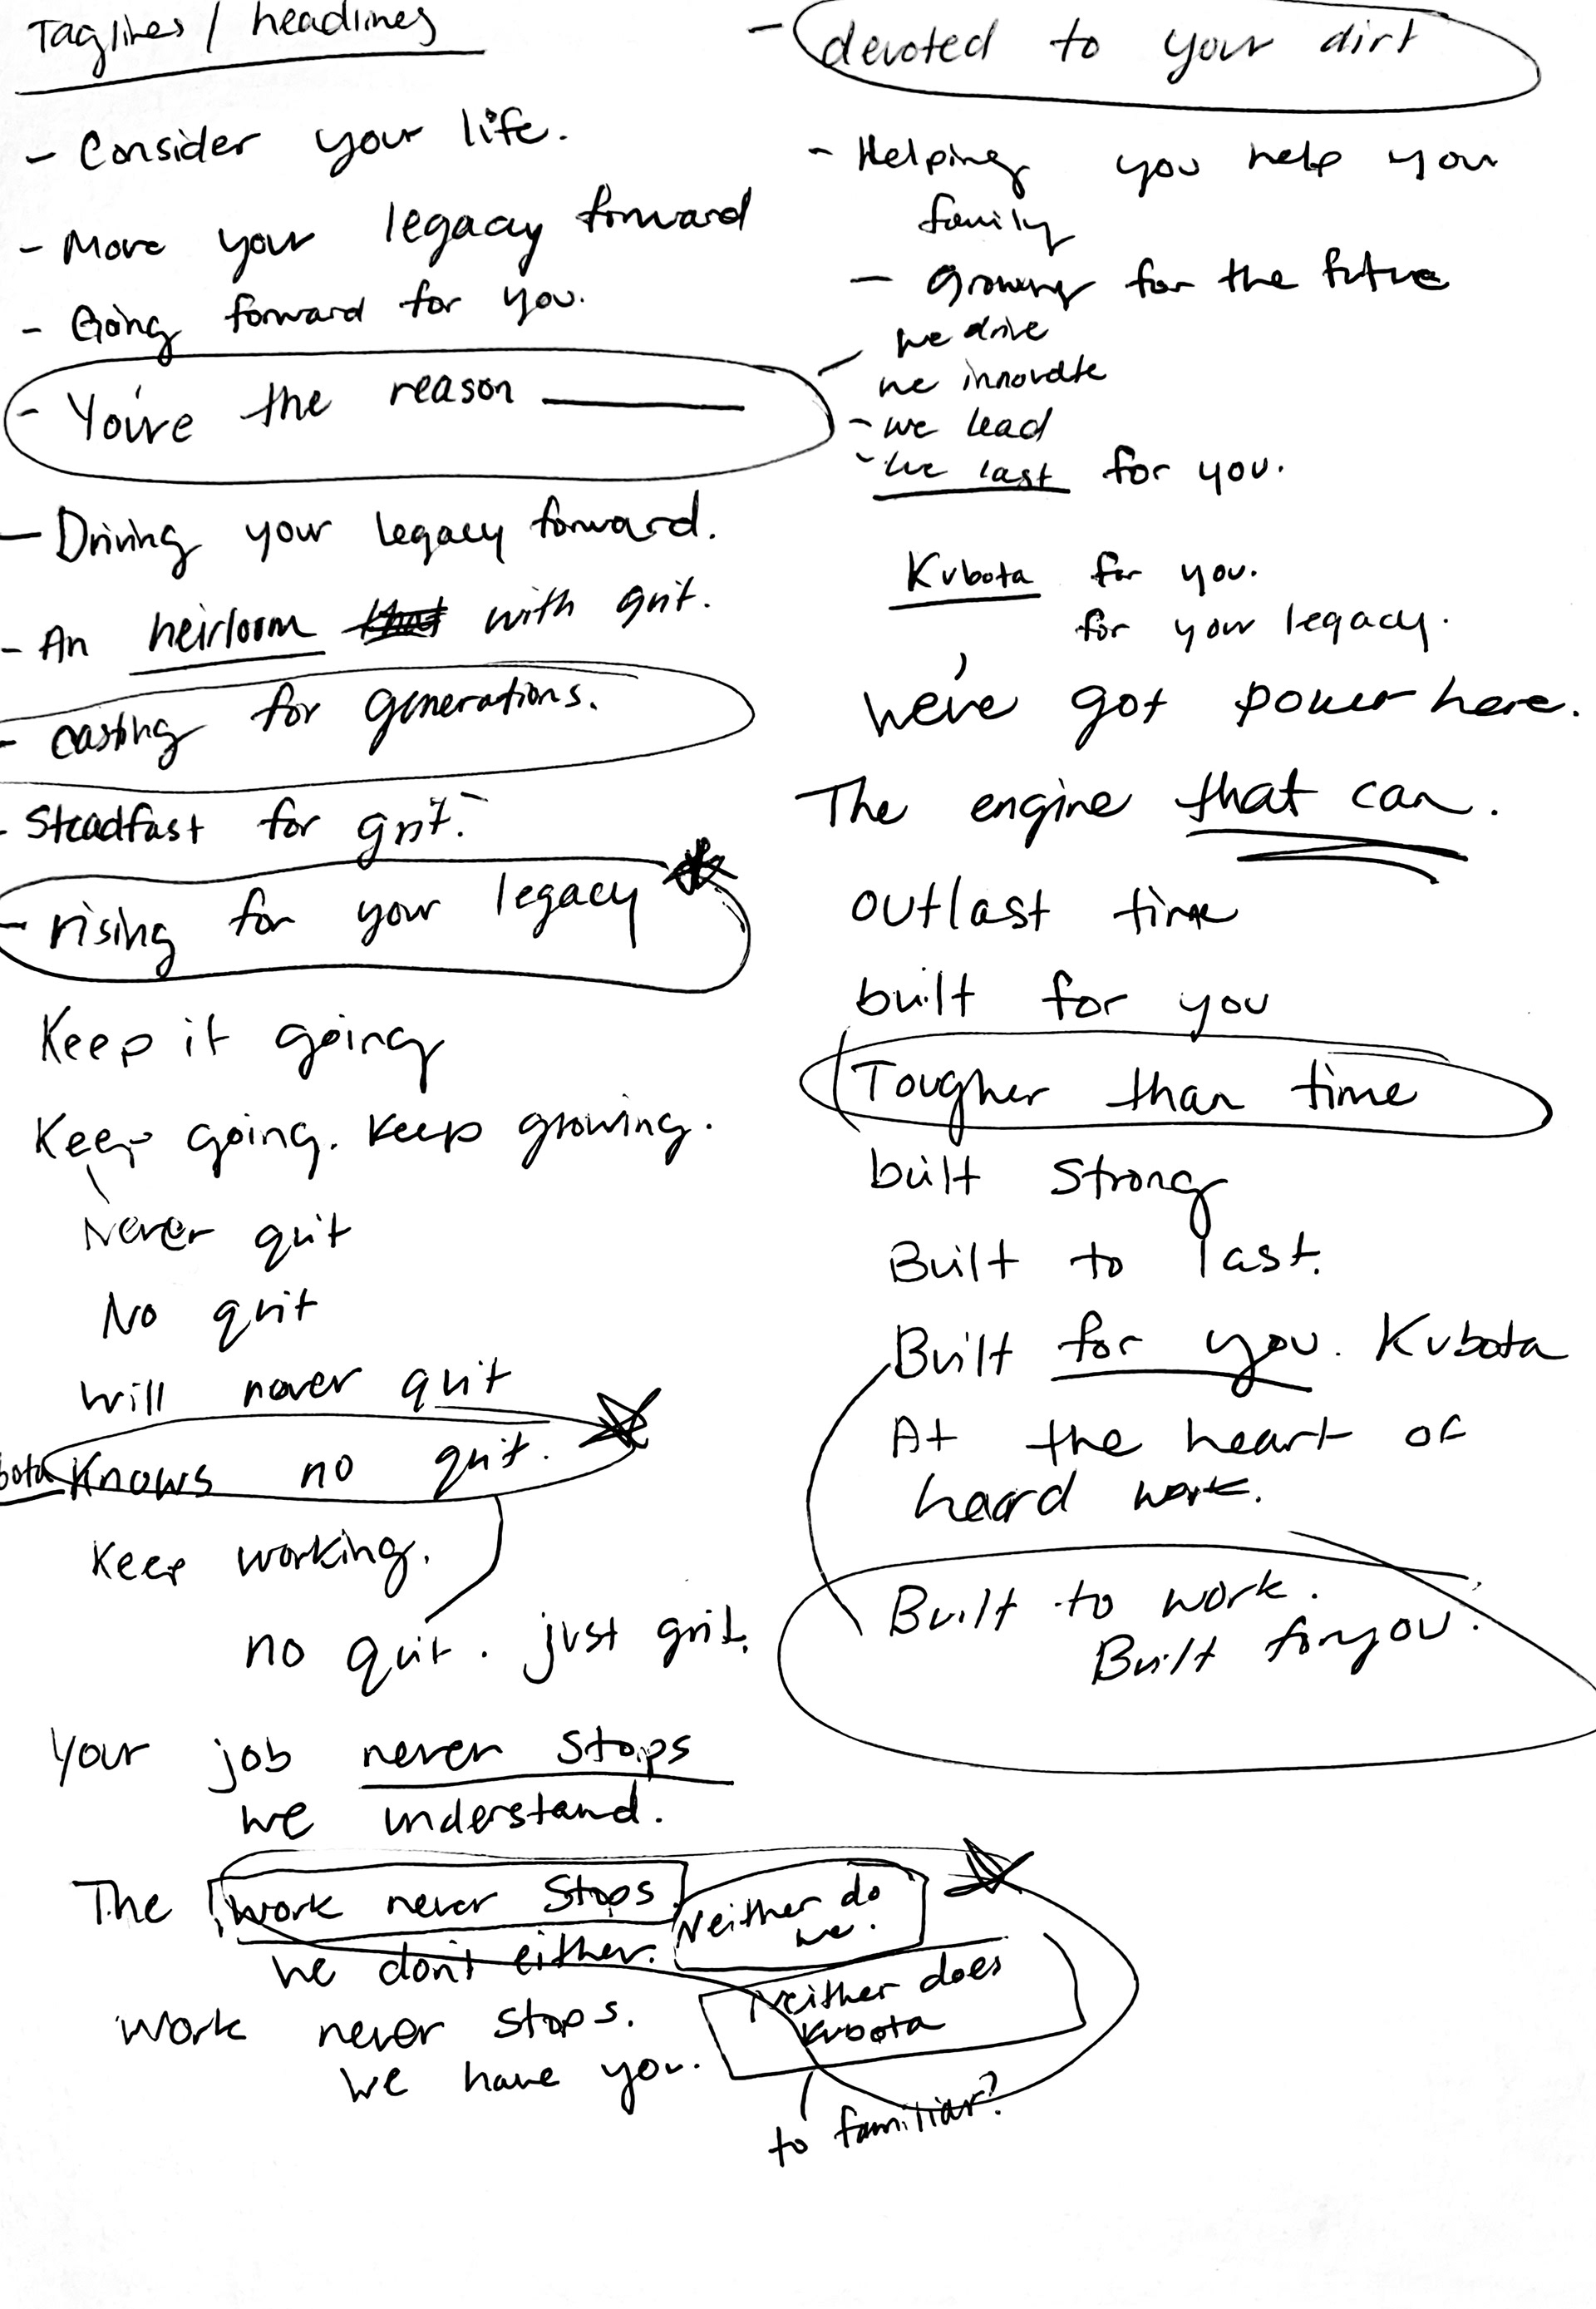 Taglines / headlines
- Consider your life.
- Move your legacy forward
- Going forward for you.
- You're the reason ______
- Driving your legacy forward.
- An heirloom that with grit.
- casting for generations.
- Steadfast for grit.
- rising for your legacy
Keep it going
Keep going. Keep growing.
Never quit
No quit
Will never quit
bota Knows no quit.
Keep working.
no quit. just grit.
Your job never stops
we understand.
The work never stops. Neither do we.
we don't either.
Neither does
Kubota
Work never stops.
We have you.
to familiar?
- devoted to your dirt
- Helping you help your
family
- Growing for the future
- we drive
we innovate
- we lead
- we last for you.
Kubota for you.
for your legacy.
we've got power here.
The engine that can.
outlast time
built for you
Tougher than time
built strong
Built to last.
Built for you. Kubota
At the heart of
hard work.
Built to work.
Built for you.